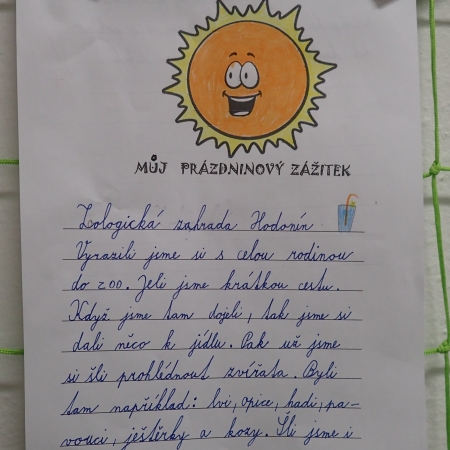 MŮJ PRÁZDNINOVÝ ZÁŽITEK
Zoologická zahrada Hodonín
Vyrazili jsme si s celou rodinou
do zoo. Jeli jsme krátkou cestu.
Když jsme tam dojeli, tak jsme si
dali něco k jídlu. Pak už jsme
si šli prohlédnout zvířata. Byli
tam například: lvi, opice, hadi, pa-
vouci, ještěrky a kozy. Šli jsme i